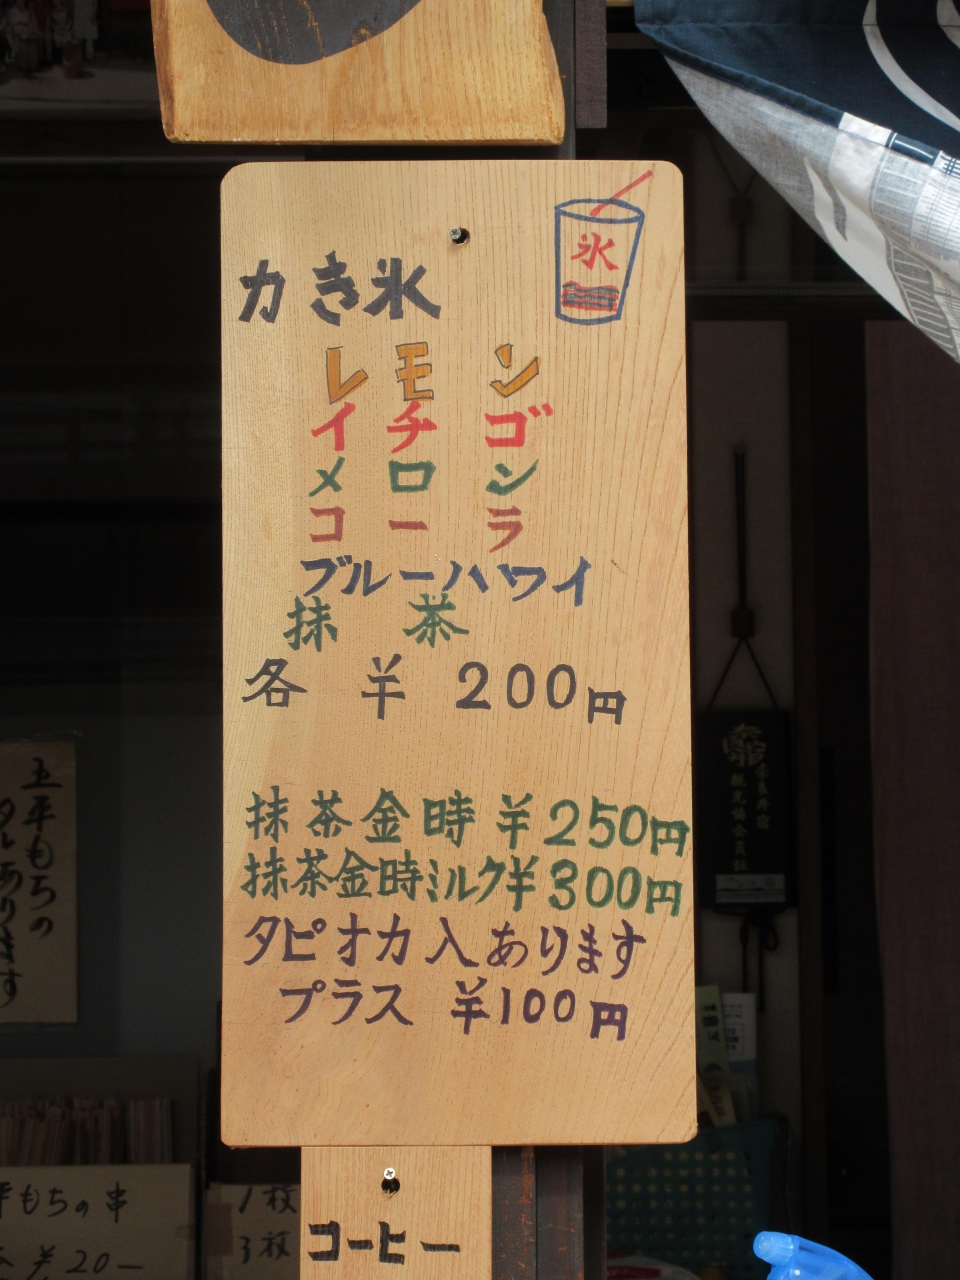 氷
カき氷
レモン
イチゴ
メロン
コーラ
ブルーハワイ
抹茶
各 ¥200円
抹茶金時 ¥250円
抹茶金時ミルク¥300円
タピオカ入あります
プラス ¥100円
コーヒー
五平もちの
タレあります
平もちの串
1枚
3枚